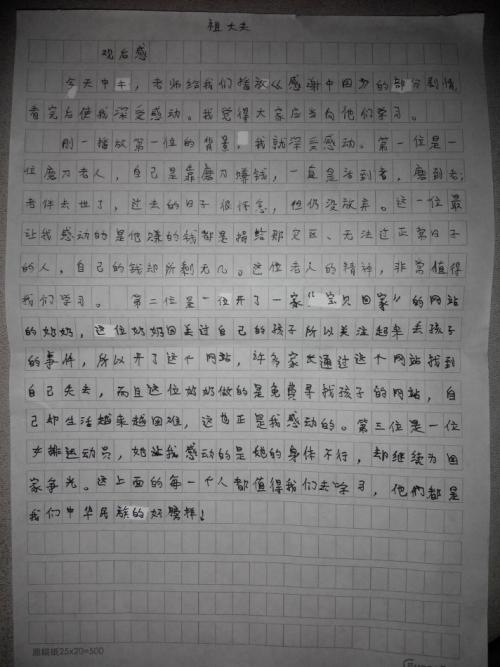 祖大夫
观后感
今天中午，老师给我们播放《感谢中国》的部分剧情，
看完后使我深受感动。我觉得大家应当向他们学习。
刚一播放第一位的背景，我就深受感动。第一位是一
位磨刀老人，自己是靠磨刀赚钱，一直是活到老，磨到老，
老伴去世了，过去的日子很怀念，但仍没放弃。这一位最
让我感动的是他赚的钱都是捐给那灾区、无法过正常日子
的人，自己的钱却所剩无几。这位老人的精神，非常值得
我们学习。 第二位是一位开了一家“宝贝回家”的网站
的奶奶，这位奶奶因丢过自己的孩子所以关注起来丢孩子
的事件，所以开了这个网站，许多家长通过这个网站找到
自己失去，而且这位奶奶做的是免费寻找孩子的网站，自
己却生活越来越困难，这也正是我感动的。第三位是一位
排运动员，她让我感动的是她的身体不行，却继续为国
家争光。这上面的每一个人都值得我们去学习，他們都是
我们中华民族的好榜样！
稿纸25x20=500